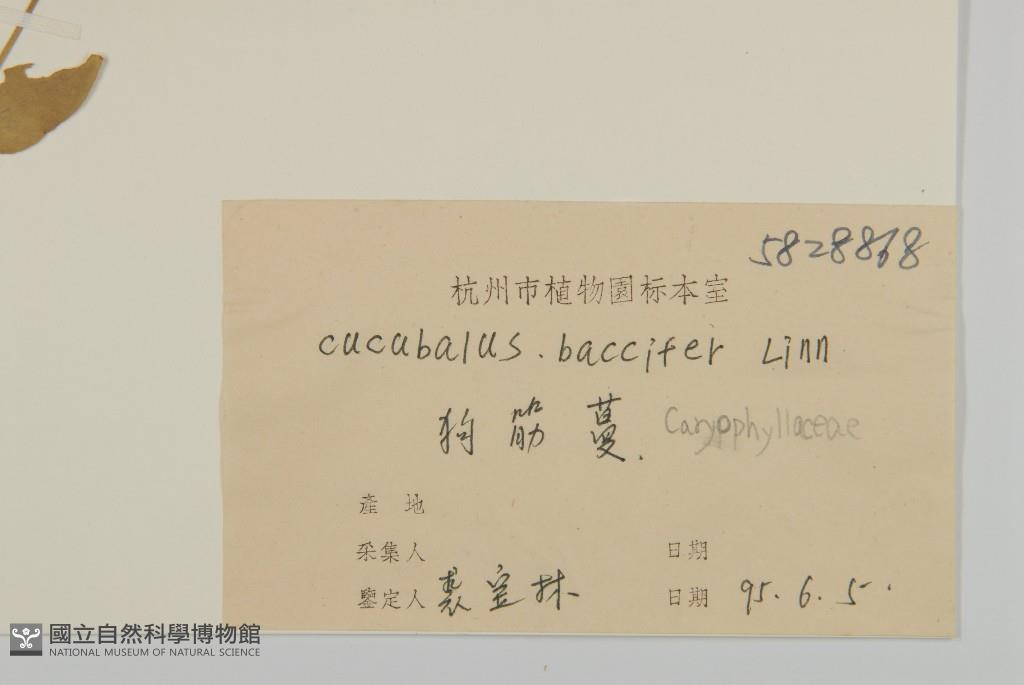 5828868
杭州市植物園标本室
cucubalus. baccifer Linn
狗筋蔓. Caryophyllaceae
產地
采集人 日期
鑒定人 裘宝林 日期 95.6.5.
國立自然科學博物館
NATIONAL MUSEUM OF NATURAL SCIENCE